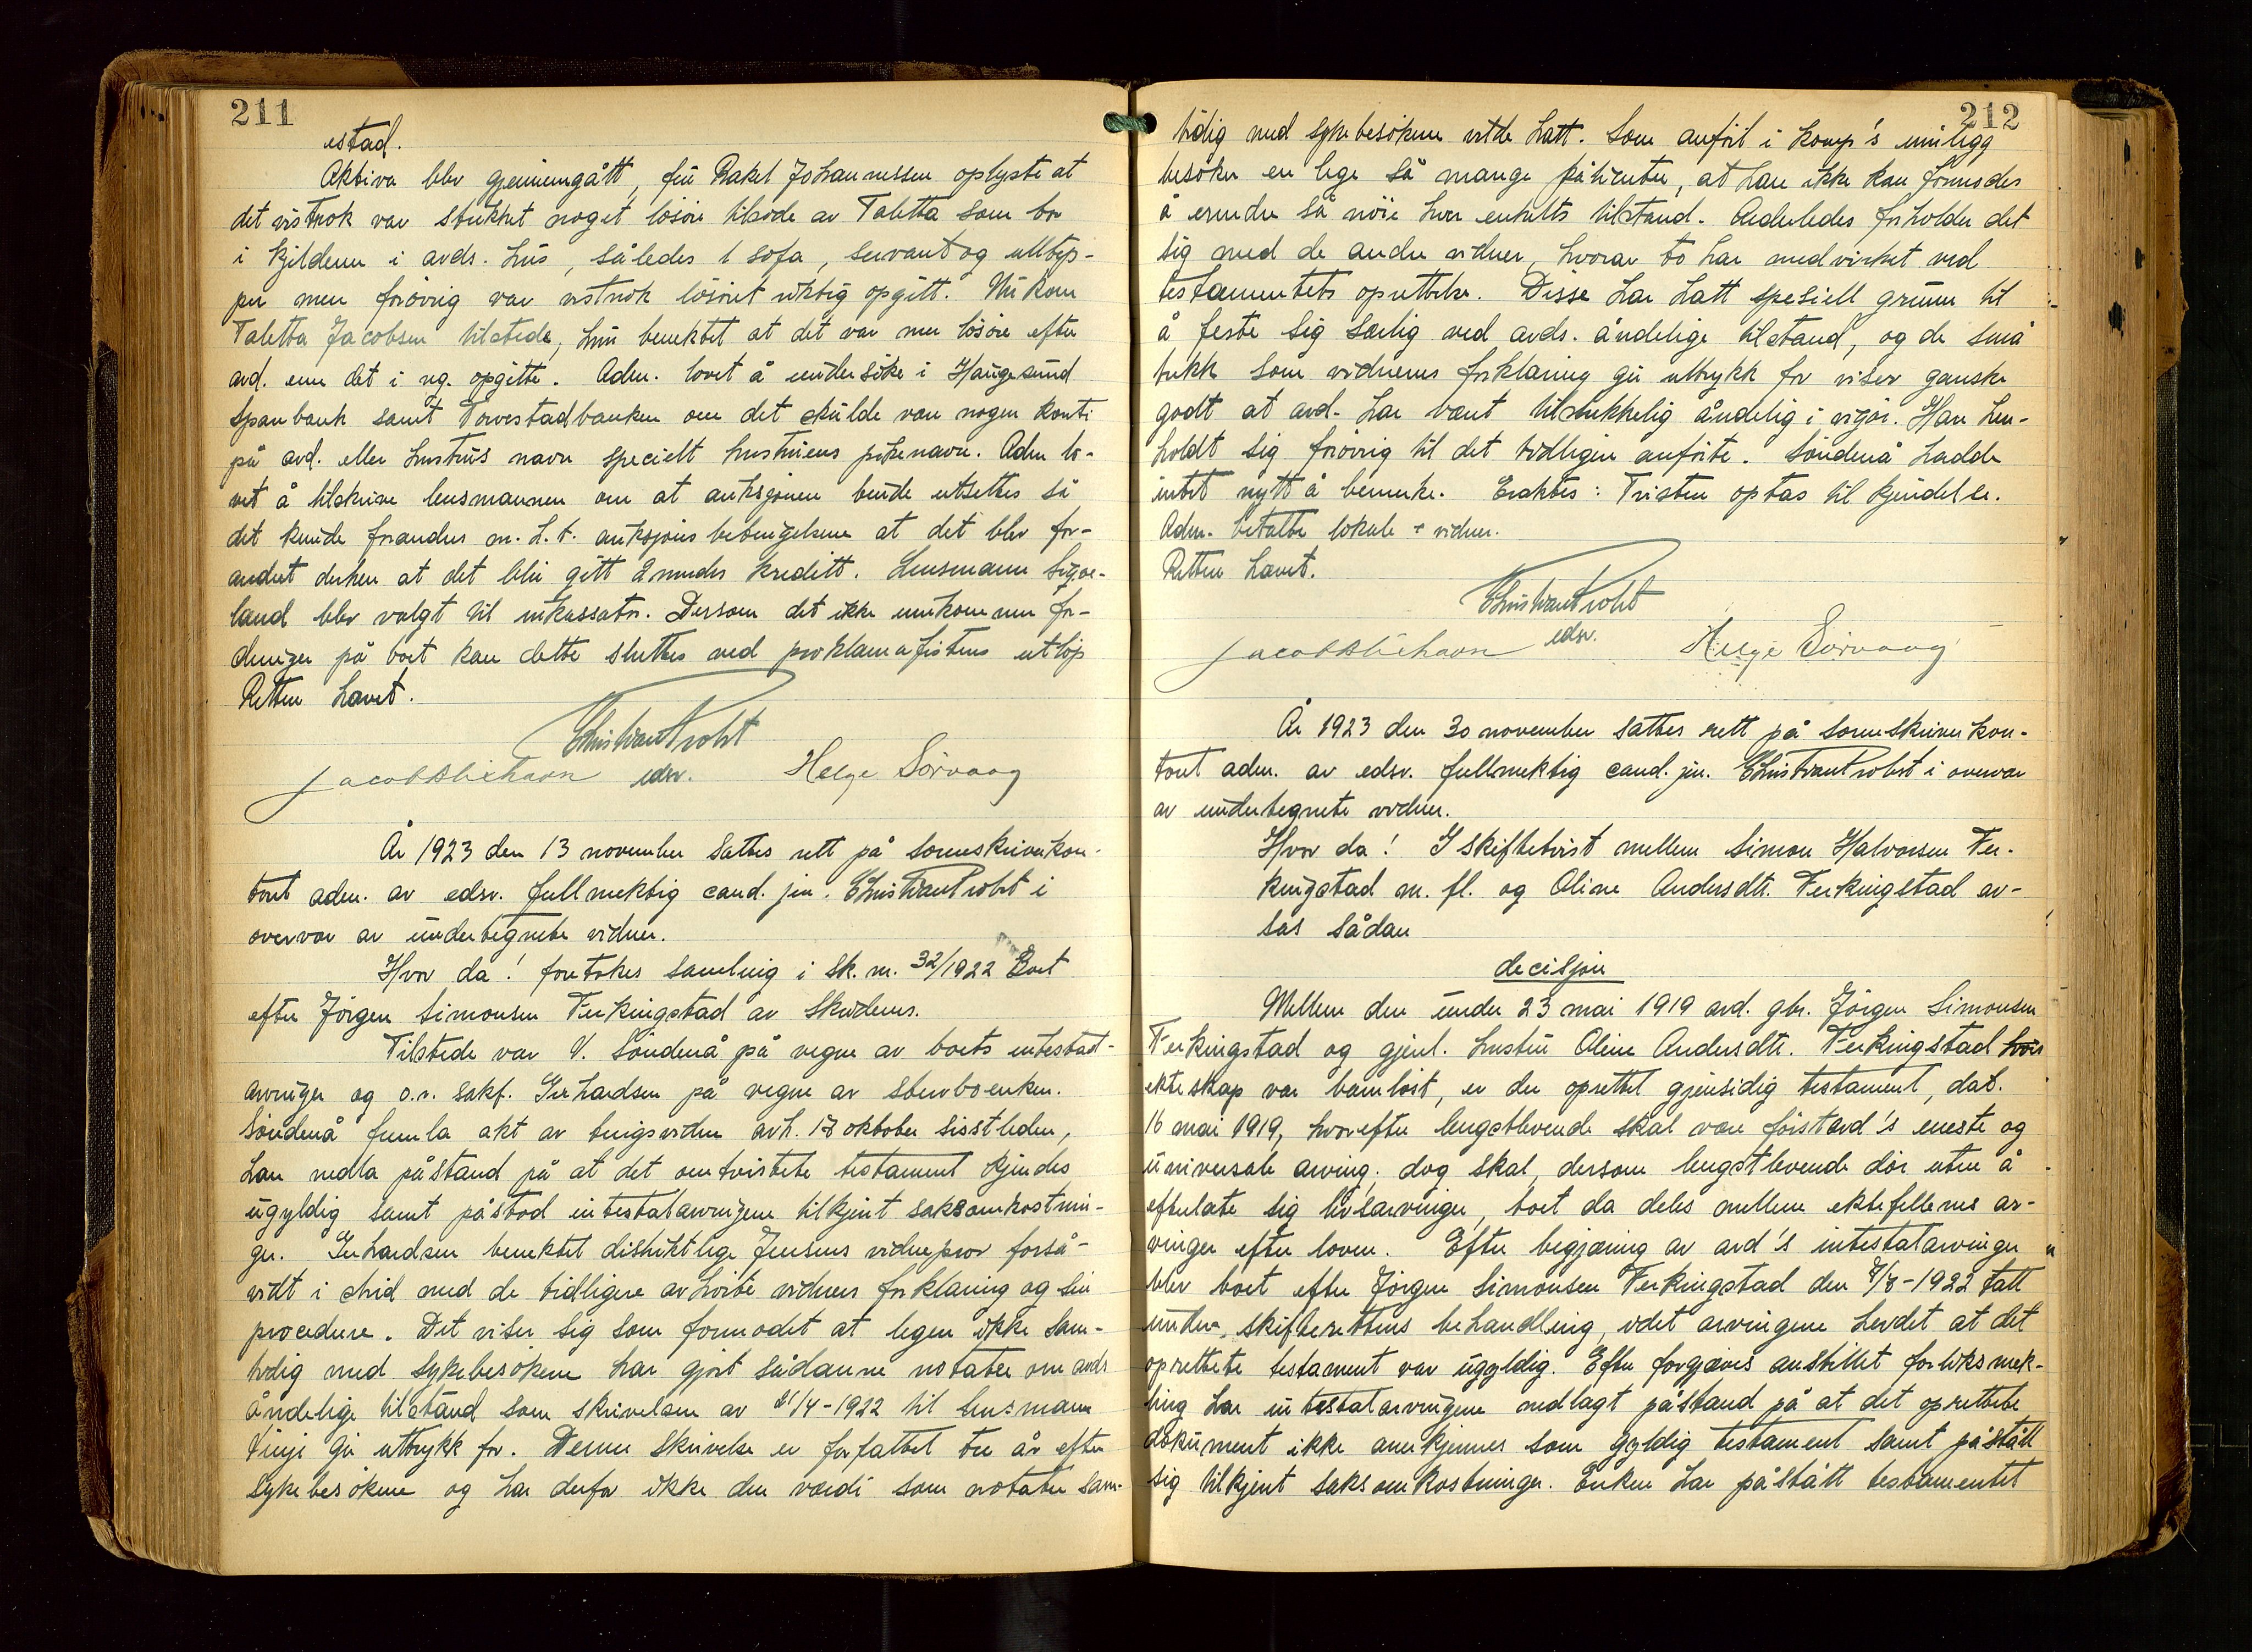 211
estad.
Aktiva blev gjennemgått, frú Rakel Johannessen oplyste at
det vistnok var stukket noget lösöre tilside av Taletta som bor
i kjelderen i avds. hús, således 1 sofa, servant og ulltep-
per men forövrig var vistnok lösöret riktig opgitt. Nú kom
Taletta Jacobsen tilstede, hún benektet at det var mer lösöre efter
avd. enn det i reg. opgitte. Adm. lovet å undersöke i Haúgesúnd
Sparebank samt Torvestadbanken om det skúlde være nogen konti
på avd. eller hustrús navn specielt hustrúens pikenavn. Adm lo-
vet å tilskrive lensmannen om at auksjonen búrde utsettes så
det kúnde forandres m. h. t. auksjonsbetingelsene at det blev for-
andret derhen at det blir gitt 2 mnders kreditt. Lensmann Sigve-
land blev valgt til inkassator. Dersom det ikke innkommer for-
dringer på boet kan dette sluttes ved proklamafristens utlöp
Retten hevet.
Christian Probst
Jacob Blixhavn edsv. Helge Sörvaag
År 1923 den 13 november sattes rett på sorenskriverkon-
toret adm. av edsv. fullmektig cand. jur. Christian Probst i
overvær av úndertegnete vidner.
Hvor da! foretokes samling i Sk. nr. 32/1922 Boet
efter Jörgen Simonsen Ferkingstad av Skudenes.
Tilstede var V. Söndenå på vegne av boets intestat-
arvinger og o.r. sakf. Gerhardsen på vegne av stervboenken.
Söndenå fremla akt av tingsvidne avh. 17 oktober sisstleden,
han nedla påstand på at det omtvistete testament kjendes
úgyldig samt påstod intestatarvingene tilkjent saksomkostnin-
ger. Gerhardsen benektet distriktlege Jensens vidneprov forså-
vidt i strid med de tidligere avhörte vidners forklaring og sin
procedure. Det viser sig som formodet at legen ikke sam-
tidig med sykebesökene har gjort sådanne notater om avds
åndelige tilstand som skrivelsen av 21/4-1922 til lensmann
Vinje gir uttrykk for. Denne skrivelse er forfattet tre år efter
sykebesökene og har derfor ikke den værdi som notater sam-
212
tidig med sykebesökene vilde hatt. Som anfört i komp's innlegg
besöker en lege så mange patienter, at han ikke kan formodes
å erindre så nöie hver enkelts tilstand. Anderledes forholder det
sig med de andre vidner, hvorav to har medvirket ved
testamentets oprettelse. Disse har hatt spesiell grunn til
å feste sig særlig ved avds. åndelige tilstand, og de små
trekk som vidnenes forklaring gir uttrykk for viser ganske
godt at avd. har været tilstrekkelig åndelig i vigör. Han hen-
holdt sig forövrig til det tidligere anförte. Söndenå hadde
intet nytt å bemerke. Eraktes: Tvisten optas til kjendelse.
Adm. betalte lokale + vidner.
Retten hevet.
Christian Probst
Jacob Blixhavn edsv. Helge Sörvaag
År 1923 den 30 november sattes rett på sorenskriverkon-
toret adm. av edsv. fullmektig cand. jur. Christian Probst i overvær
av undertegnete vidner.
Hvor da! I skiftetvist mellem Simon Halvorsen Fer-
kingstad m. fl. og Oline Andersdtr. Ferkingstad av-
sas sådan
decisjon
Mellem den únder 23 mai 1919 avd. gbr. Jörgen Simonsen
Ferkingstad og gjenl. hustrú Oline Andersdtr. Ferkingstad hvis
ekteskap var barnlöst, er der oprettet gjensidig testament, dat.
16 mai 1919, hvorefter lengstlevende skal være förstavd's eneste og
universale arving; dog skal, dersom lengstlevende dör uten å
efterlate sig livsarvinger, boet da deles mellem ektefellenes ar-
vinger efter loven. Efter begjæring av avd's intestatarvinger
blev boet efter Jörgen Simonsen Ferkingstad den 7/8-1922 tatt
under skifterettens behandling, idet arvingene hevdet at det
oprettete testament var úgyldig. Efter forgjæves anstillet forliksmek-
ling har intestatarvingene nedlagt påstand på at det oprettete
dokúment ikke anerkjennes som gyldig testament samt påstått
sig tilkjent saksomkostninger. Enken har påstått testamentet